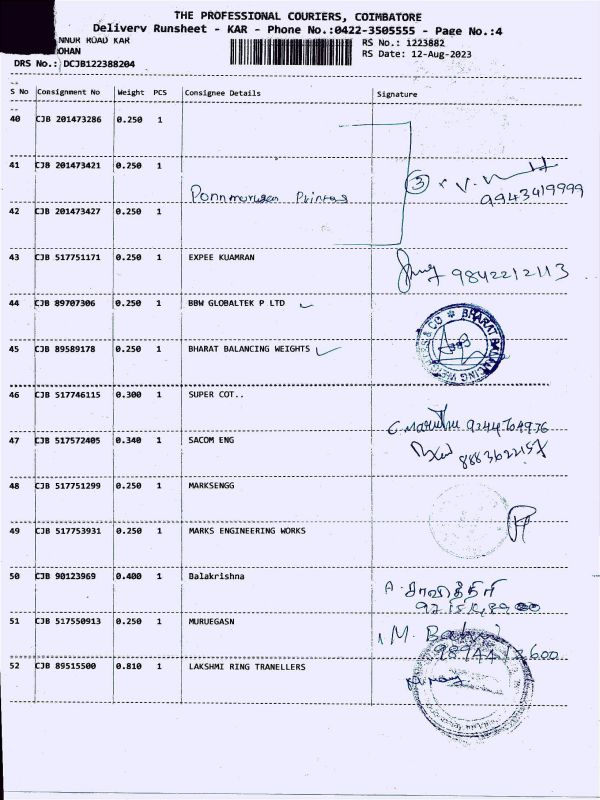 THE PROFESSIONAL COURIERS, COIMBATORE
Delivery Runsheet - KAR - Phone No.:0422-3505555 - Page No.:4
NNUR ROAD KAR
OHAN
RS No.: 1223882
RS Date: 12-Aug-2023
DRS No.: DCJB122388204
S No Consignment No Weight PCS Consignee Details Signature
40 CJB 201473286 0.250 1
41 CJB 201473421 0.250 1
Ponnmurugan Printers
3 V. 9943419999
42 CJB 201473427 0.250 1
43 CJB 517751171 0.250 1 EXPEE KUAMRAN
9842212113
44 CJB 89707306 0.250 1 BBW GLOBALTEK P LTD
45 CJB 89589178 0.250 1 BHARAT BALANCING WEIGHTS
BHARAT BALANCING WEIGHTS & CO
46 CJB 517746115 0.300 1 SUPER COT..
47 CJB 517572405 0.340 1 SACOM ENG
48 CJB 517751299 0.250 1 MARKSENGG
49 CJB 517753931 0.250 1 MARKS ENGINEERING WORKS
50 CJB 90123969 0.400 1 Balakrishna
51 CJB 517550913 0.250 1 MURUEGASN
52 CJB 89515500 0.810 1 LAKSHMI RING TRANELLERS